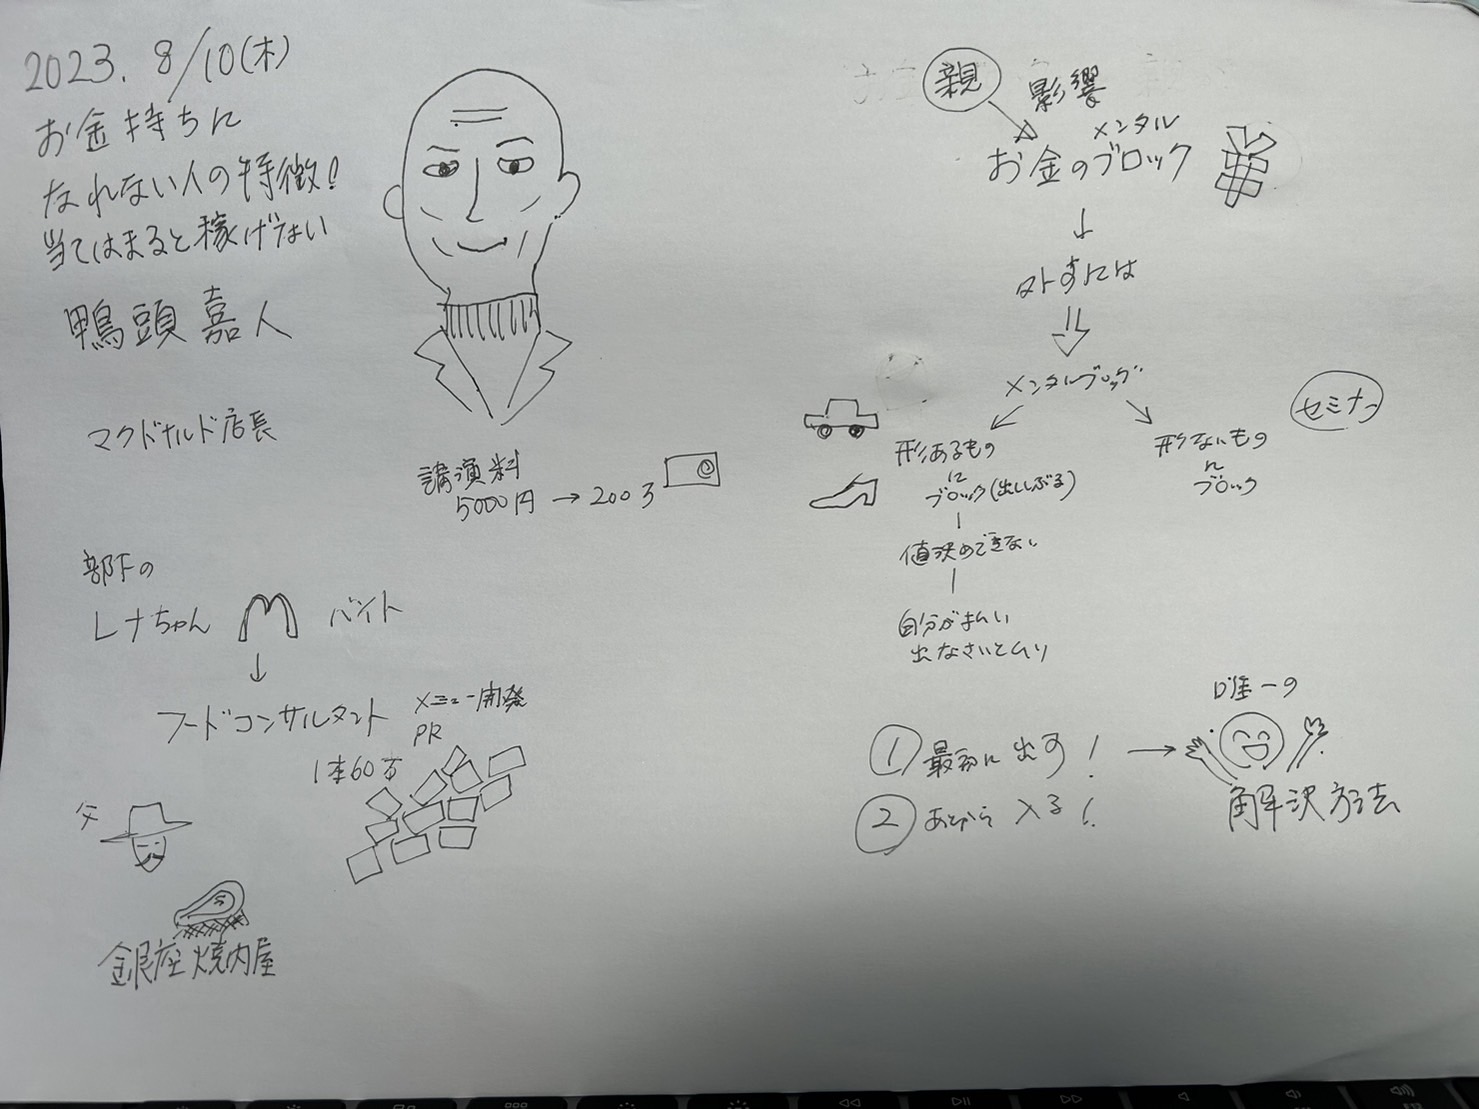 2023. 8/10(木)
お金持ちに
なれない人の特徴!
当てはまると稼げない
鴨頭 嘉人
マクドナルド店長
講演料
5000円 → 200万
部下の
レナちゃん
バイト
↓
フードコンサルタント
メニュー開発
PR
1本60万
父
銀座焼肉屋
親
影響
メンタル
お金のブロック
↓
外すには
⇓
メンタルブロック
形あるもの
に
ブロック(出ししぶる)
値決めできない
自分が払い
出なさいとムリ
形ないもの
に
ブロック
セミナー
① 最初に出す! →
② あとから入る!
唯一の
解決方法